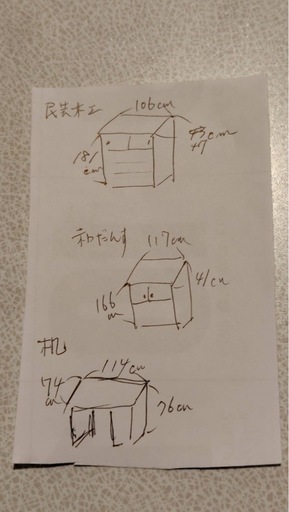 民芸木工
106cm
43cm
+7
181
cm
和だんす
117cm
41cm
166
cm
机
114cm
74
cm
76cm